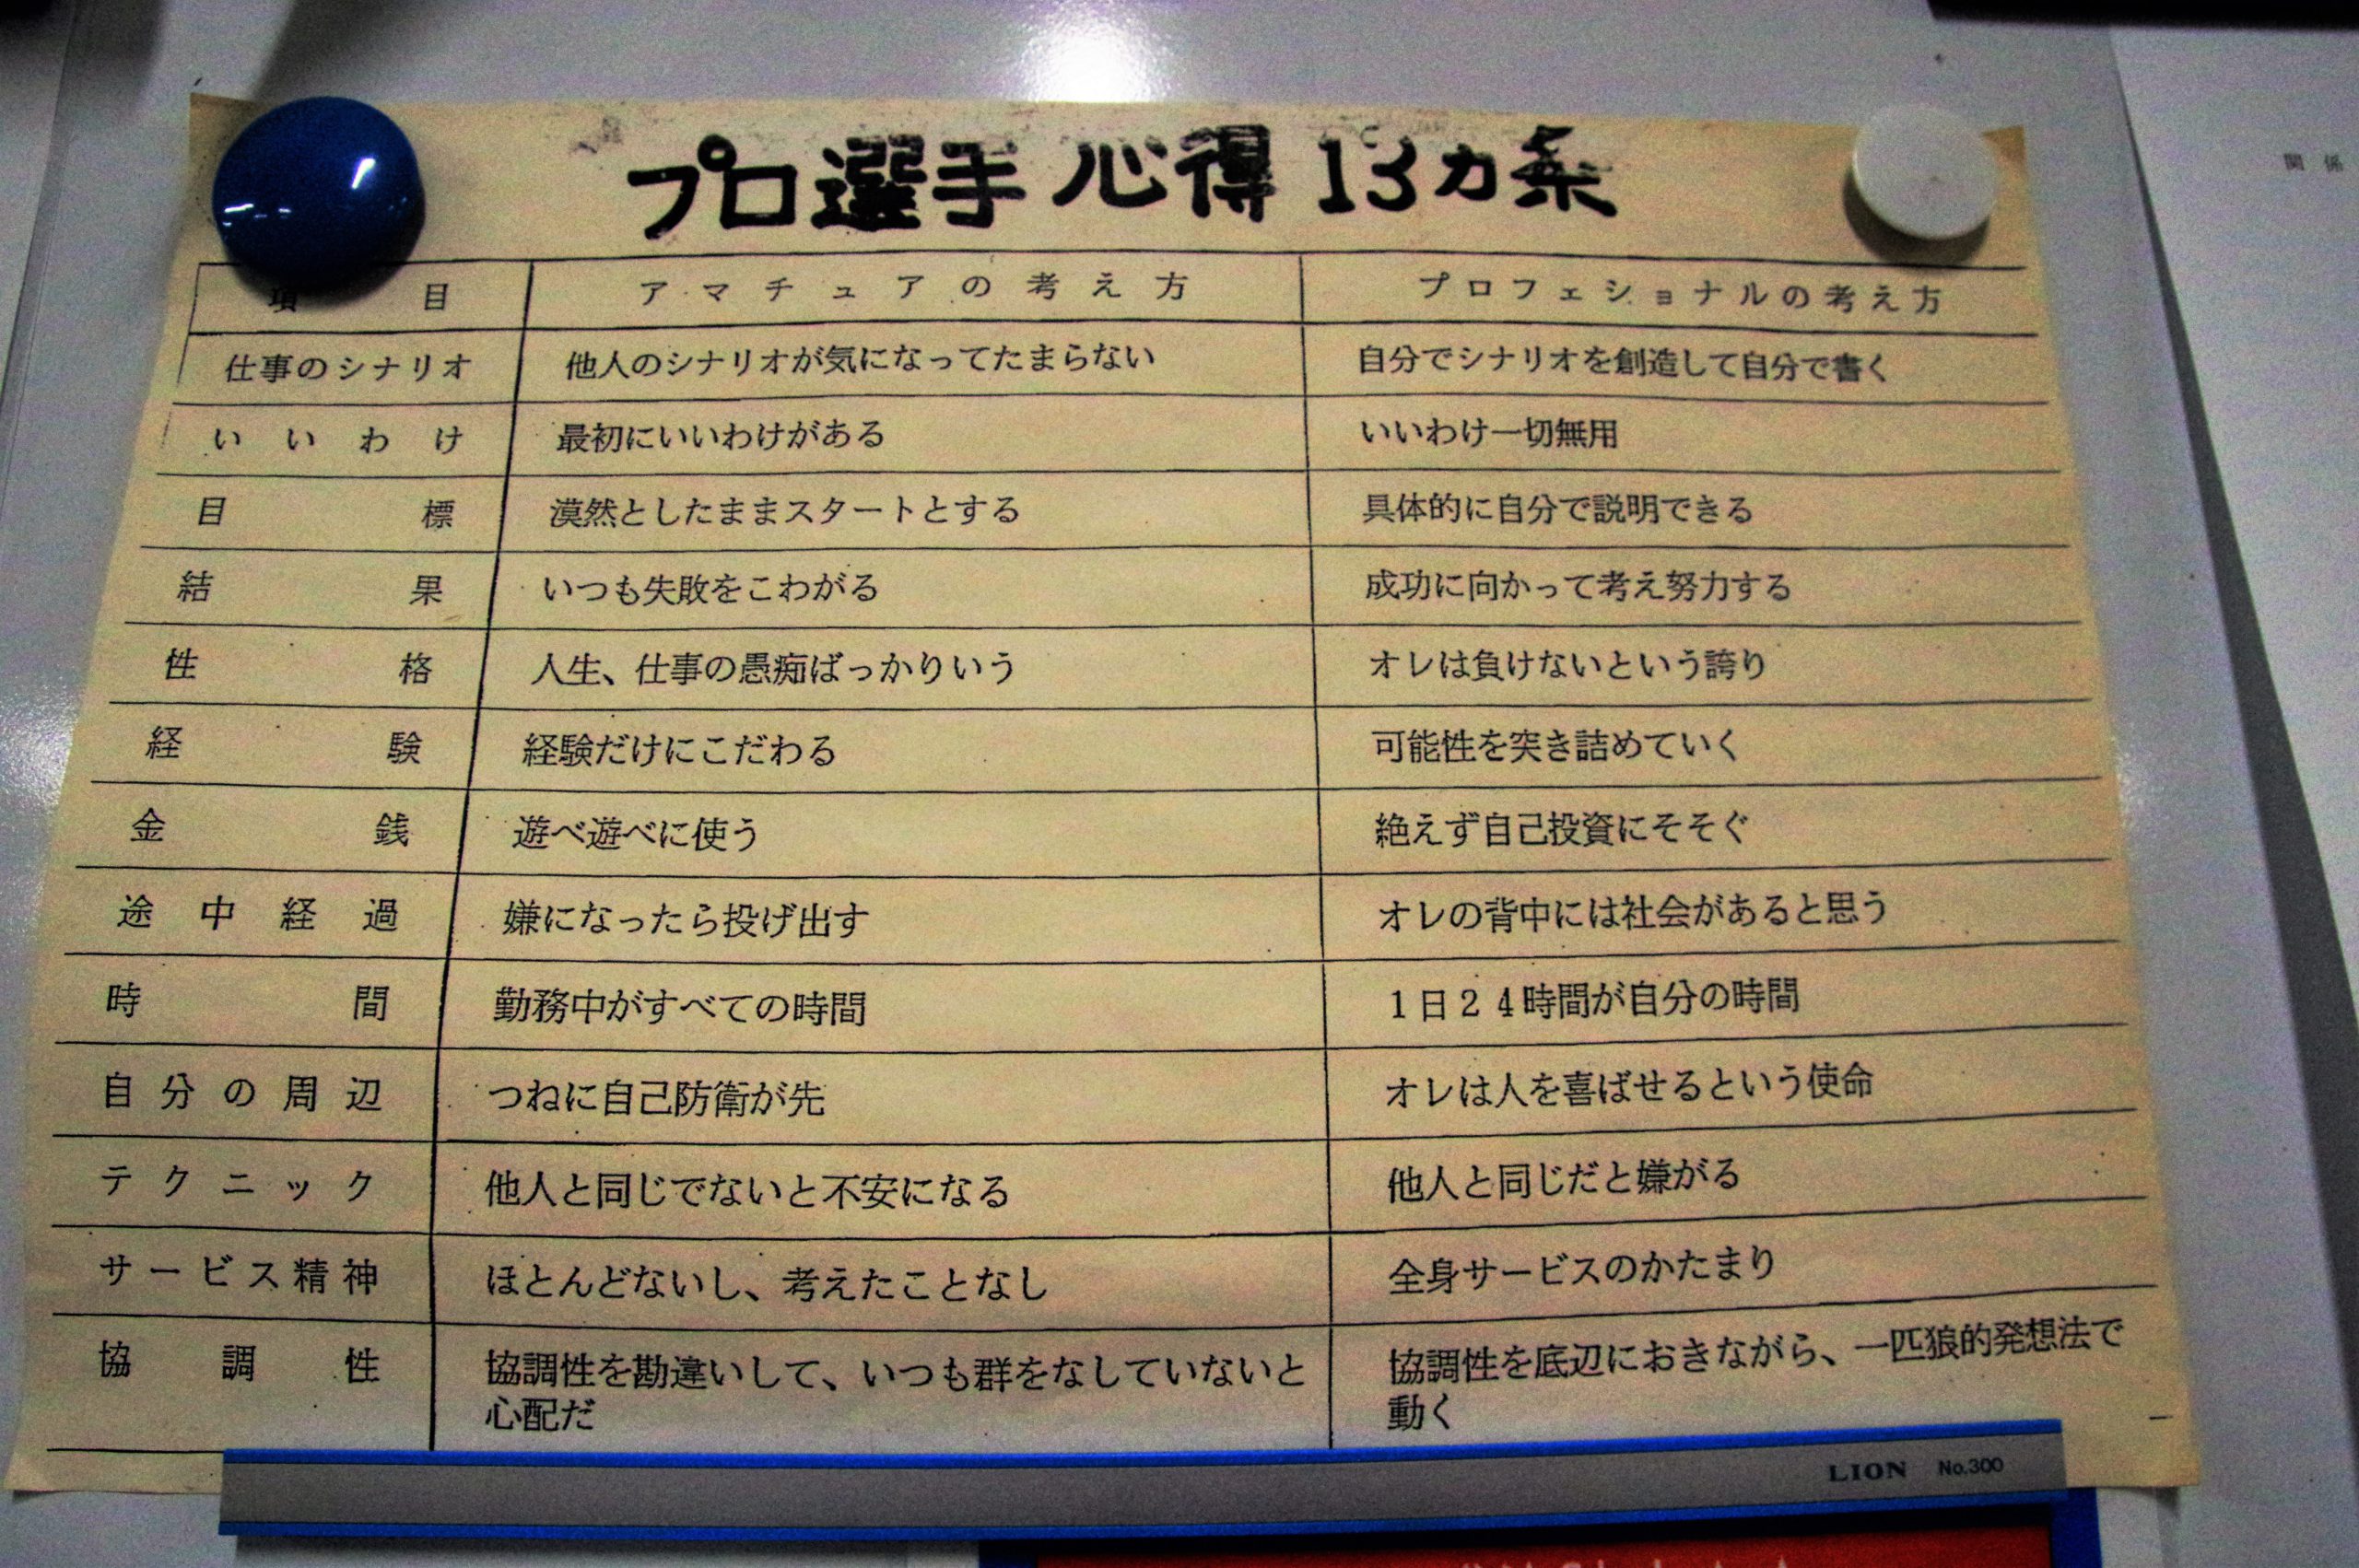 プロ選手心得13カ条
項目 アマチュアの考え方 プロフェショナルの考え方
仕事のシナリオ 他人のシナリオが気になってたまらない 自分でシナリオを創造して自分で書く
いいわけ 最初にいいわけがある いいわけ一切無用
目標 漠然としたままスタートとする 具体的に自分で説明できる
結果 いつも失敗をこわがる 成功に向かって考え努力する
性格 人生、仕事の愚痴ばっかりいう オレは負けないという誇り
経験 経験だけにこだわる 可能性を突き詰めていく
金銭 遊べ遊べに使う 絶えず自己投資にそそぐ
途中経過 嫌になったら投げ出す オレの背中には社会があると思う
時間 勤務中がすべての時間 1日24時間が自分の時間
自分の周辺 つねに自己防衛が先 オレは人を喜ばせるという使命
テクニック 他人と同じでないと不安になる 他人と同じだと嫌がる
サービス精神 ほとんどないし、考えたことなし 全身サービスのかたまり
協調性 協調性を勘違いして、いつも群をなしていないと 協調性を底辺におきながら、一匹狼的発想法で
心配だ 動く
LION No.300
関係